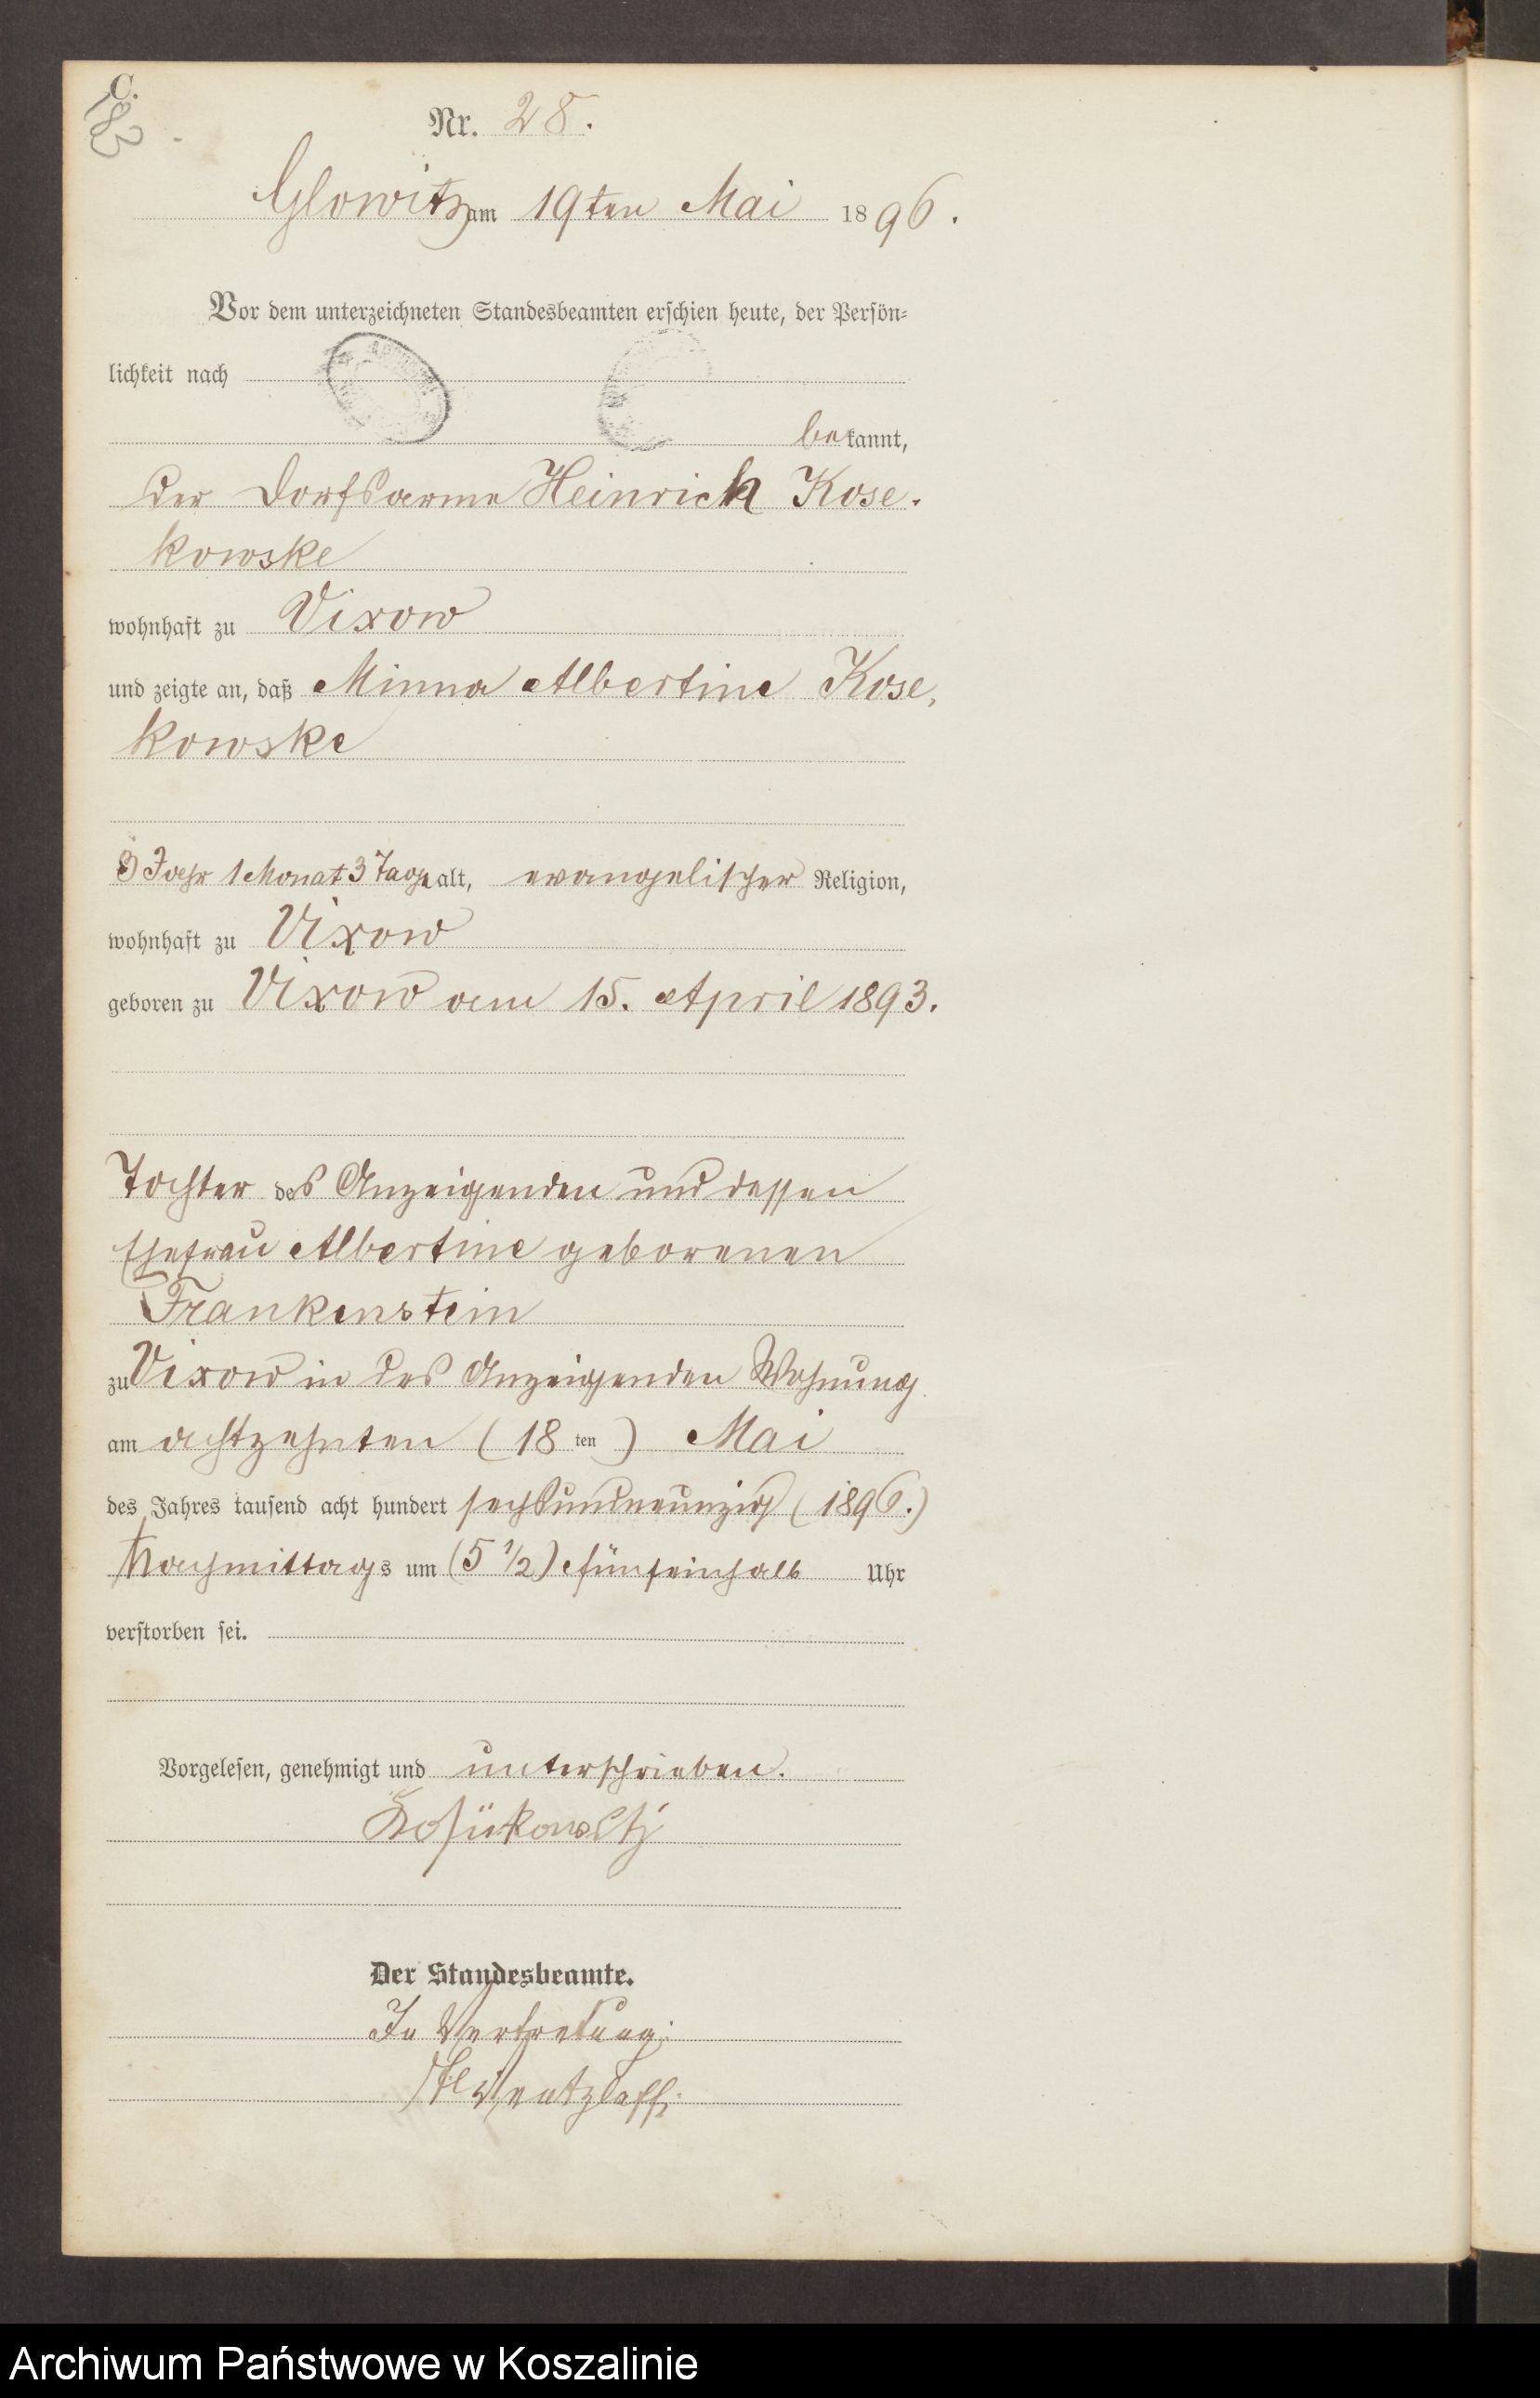 C.
Nr. 28.
Glowitz am 19ten Mai 1896.
Vor dem unterzeichneten Standesbeamten erschien heute, der Persön-
lichkeit nach
bekannt,
der Dorfsarme Heinrich Kose-
kowske
wohnhaft zu Vixow
und zeigte an, daß Minna Albertine Kose-
kowske
3 Jahr 1 Monat 3 Tage alt, evangelischer Religion,
wohnhaft zu Vixow
geboren zu Vixow am 15. April 1893.
Tochter des Anzeigenden und dessen
Ehefrau Albertine geborenen
Frankenstein
zu Vixow in des Anzeigenden Wohnung
am achtzehnten (18 ten) Mai
des Jahres tausend acht hundert sechsundneunzig (1896.)
Nachmittags um (5 1/2) fünfeinhalb Uhr
verstorben sei.
Vorgelesen, genehmigt und unterschrieben.
Der Standesbeamte.
In Vertretung:
Wentzlaff.
Archiwum Państwowe w Koszalinie